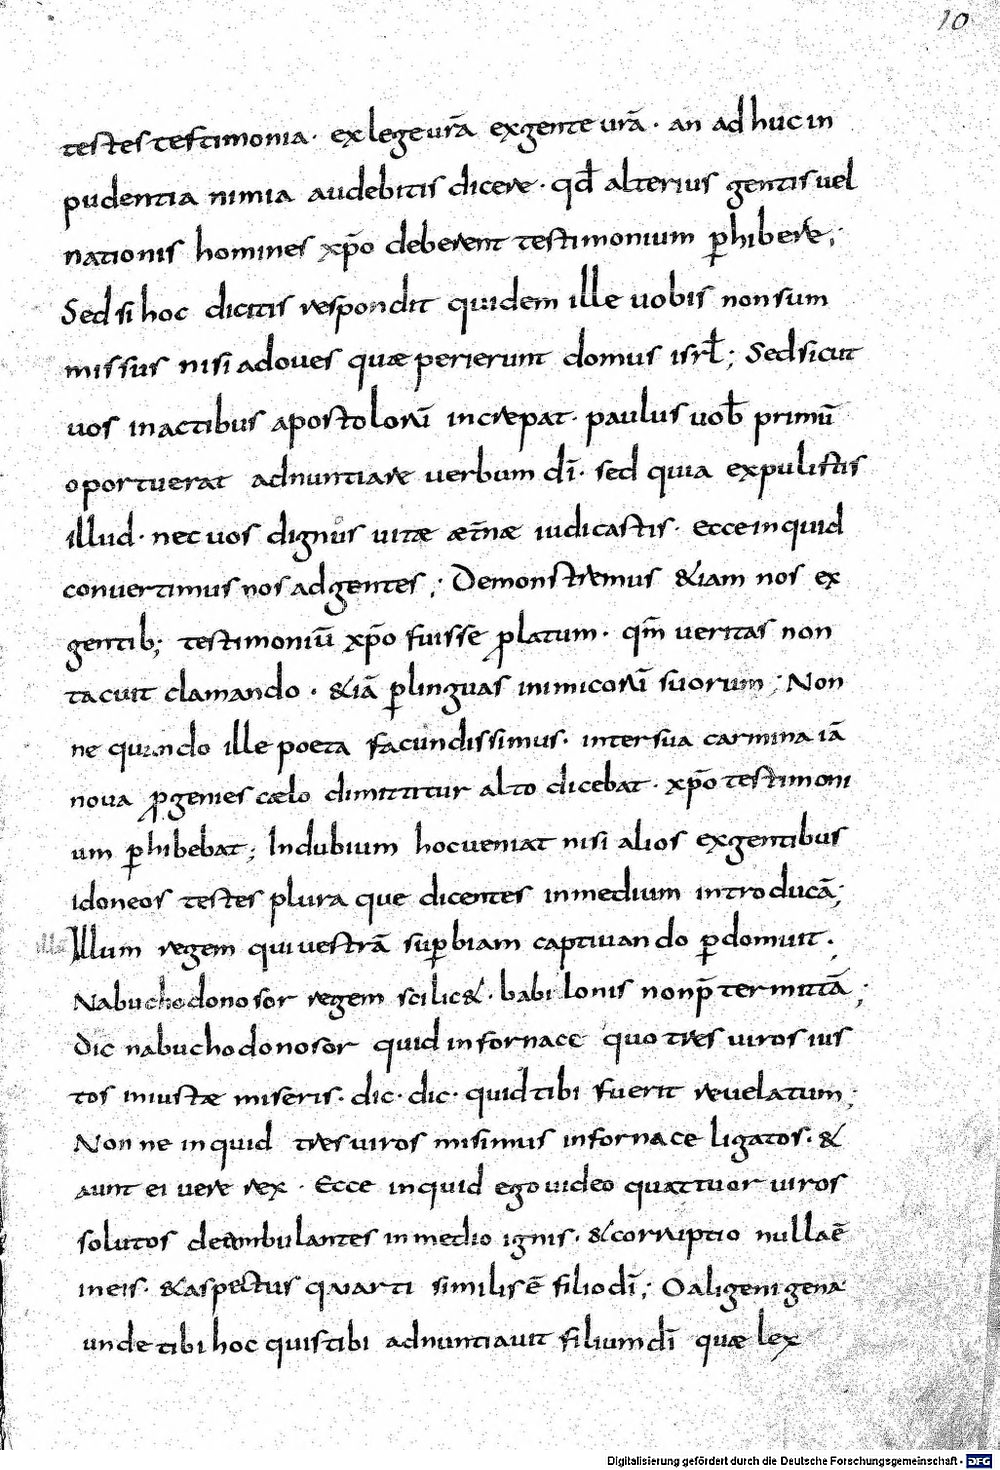 10
testes testimonia · ex lege urā ex gente urā · an ad huc in
pudentia nimia audebitis dicere · qđ alterius gentis uel
nationis homines xp̄o deberent testimonium ꝑhibere;
Sed si hoc dicitis respondit quidem ille uobis non sum
missus nisi ad oues quæ perierunt domus isrł; Sed sicut
uos in actibus apostolorū increpat · paulus uob̄ primū
oportuerat adnuntiare uerbum dī · sed quia expulistis
illud · nec uos dignus uitæ æt̄næ iudicastis · ecce inquid
conuertimus nos ad gentes; Demonstremus &iam nos ex
gentib; testimoniū xp̄o fuisse ꝓlatum · qm̄ ueritas non
tacuit clamando · &iā ꝑ linguas inimicorū suorum; Non
ne quando ille poeta facundissimus · inter sua carmina iā
noua ꝓgenies cælo dimittitur alto dicebat · xp̄o testimoni
um ꝑhibebat; In dubium hoc ueniat nisi alios ex gentibus
idoneos testes plura que dicentes in medium introducā;
Illum regem qui uestrā suꝑbiam captiuando ꝑdomuit ·
Nabuchodonosor regem scilic& · babilonis non p̄termittā;
Dic nabuchodonosor quid in fornace quo tres uiros ius
tos iniustæ miseris · dic · dic · quid tibi fuerit reuelatum;
Non ne inquid tres uiros misimus in fornace ligatos · &
aunt ei uere rex · Ecce inquid ego uideo quattuor uiros
solutos deambulantes in medio ignis · & corruptio nulla ē
in eis · & aspectus quarti similis ē filio dī; O aligenigena
unde tibi hoc quis tibi adnuntiauit filium dī quæ lex
Digitalisierung gefördert durch die Deutsche Forschungsgemeinschaft - DFG